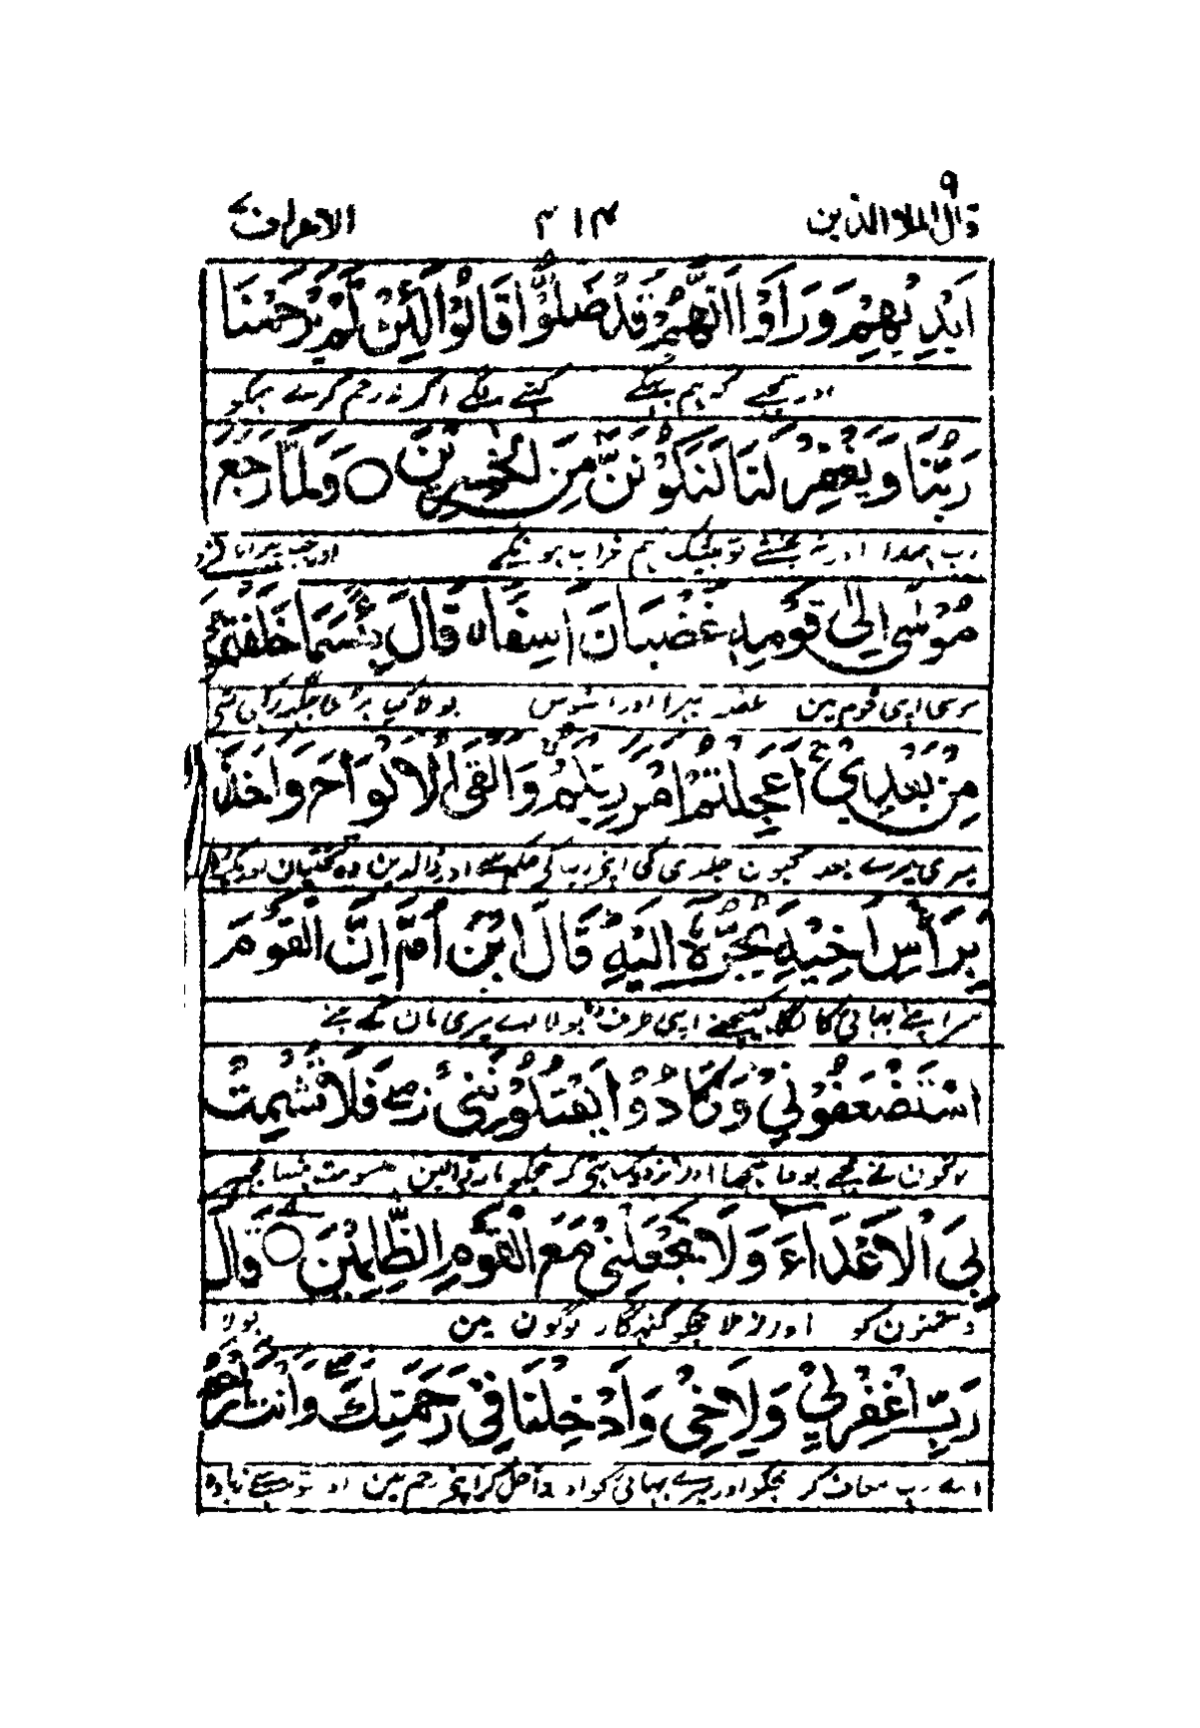 قال الملا الذين ۹ ۳۱۴ الاعراف ۷
اَيْدِيْهِمْ وَرَاَوْا اَنَّهُمْ قَدْ ضَلُّوْا قَالُوْا لَئِنْ لَّمْ يَرْحَمْنَا
اور سمجھے کہ ہم بہکے کہنے لگے اگر نہ رحم کرے ہمکو
رَبُّنَا وَيَغْفِرْ لَنَا لَنَكُوْنَنَّ مِنَ الْخٰسِرِيْنَ ○ وَلَمَّا رَجَعَ
رب ہمارا اور نہ بخشے تو بیشک ہم خراب ہونگے اور جب پھر آیا
مُوْسٰى اِلٰى قَوْمِهٖ غَضْبَانَ اَسِفًا قَالَ بِئْسَمَا خَلَفْتُمُوْنِيْ
موسی اپنی قوم مین غصہ بھرا اور افسوس بولا کیا بری جگہ رکھی تمنی
مِنْ بَعْدِيْ ج اَعَجِلْتُمْ اَمْرَ رَبِّكُمْ وَاَلْقَى الْاَلْوَاحَ وَاَخَذَ
میری میرے بعد کیون جلدی کی اپنی رب کی حکم سے اور ڈالدین وہ تختیان اور پکڑا
بِرَاْسِ اَخِيْهِ يَجُرُّهٗ اِلَيْهِ قَالَ ابْنَ اُمَّ اِنَّ الْقَوْمَ
سر اپنے بھائی کا لگا کھینچنے اپنی طرف بولا اے میری مان کے جنے
اسْتَضْعَفُوْنِيْ وَكَادُوْا يَقْتُلُوْنَنِيْ ز فَلَا تُشْمِتْ
لوگون نے مجھے بودا سمجھا اور نزدیک تھی کہ مجکو مار ڈالین سو مت ہنسا مجھپر
بِيَ الْاَعْدَآءَ وَلَا تَجْعَلْنِيْ مَعَ الْقَوْمِ الظّٰلِمِيْنَ ○ قَالَ
دشمنون کو اور نہ ملا مجکو گنہگار لوگون مین بولا
رَبِّ اغْفِرْ لِيْ وَلِاَخِيْ وَاَدْخِلْنَا فِيْ رَحْمَتِكَ وَاَنْتَ اَرْحَمُ
اے رب معاف کر مجکو اور میرے بھائی کو اور داخل کر اپنی رحم مین اور تو ہے سب سے زیادہ